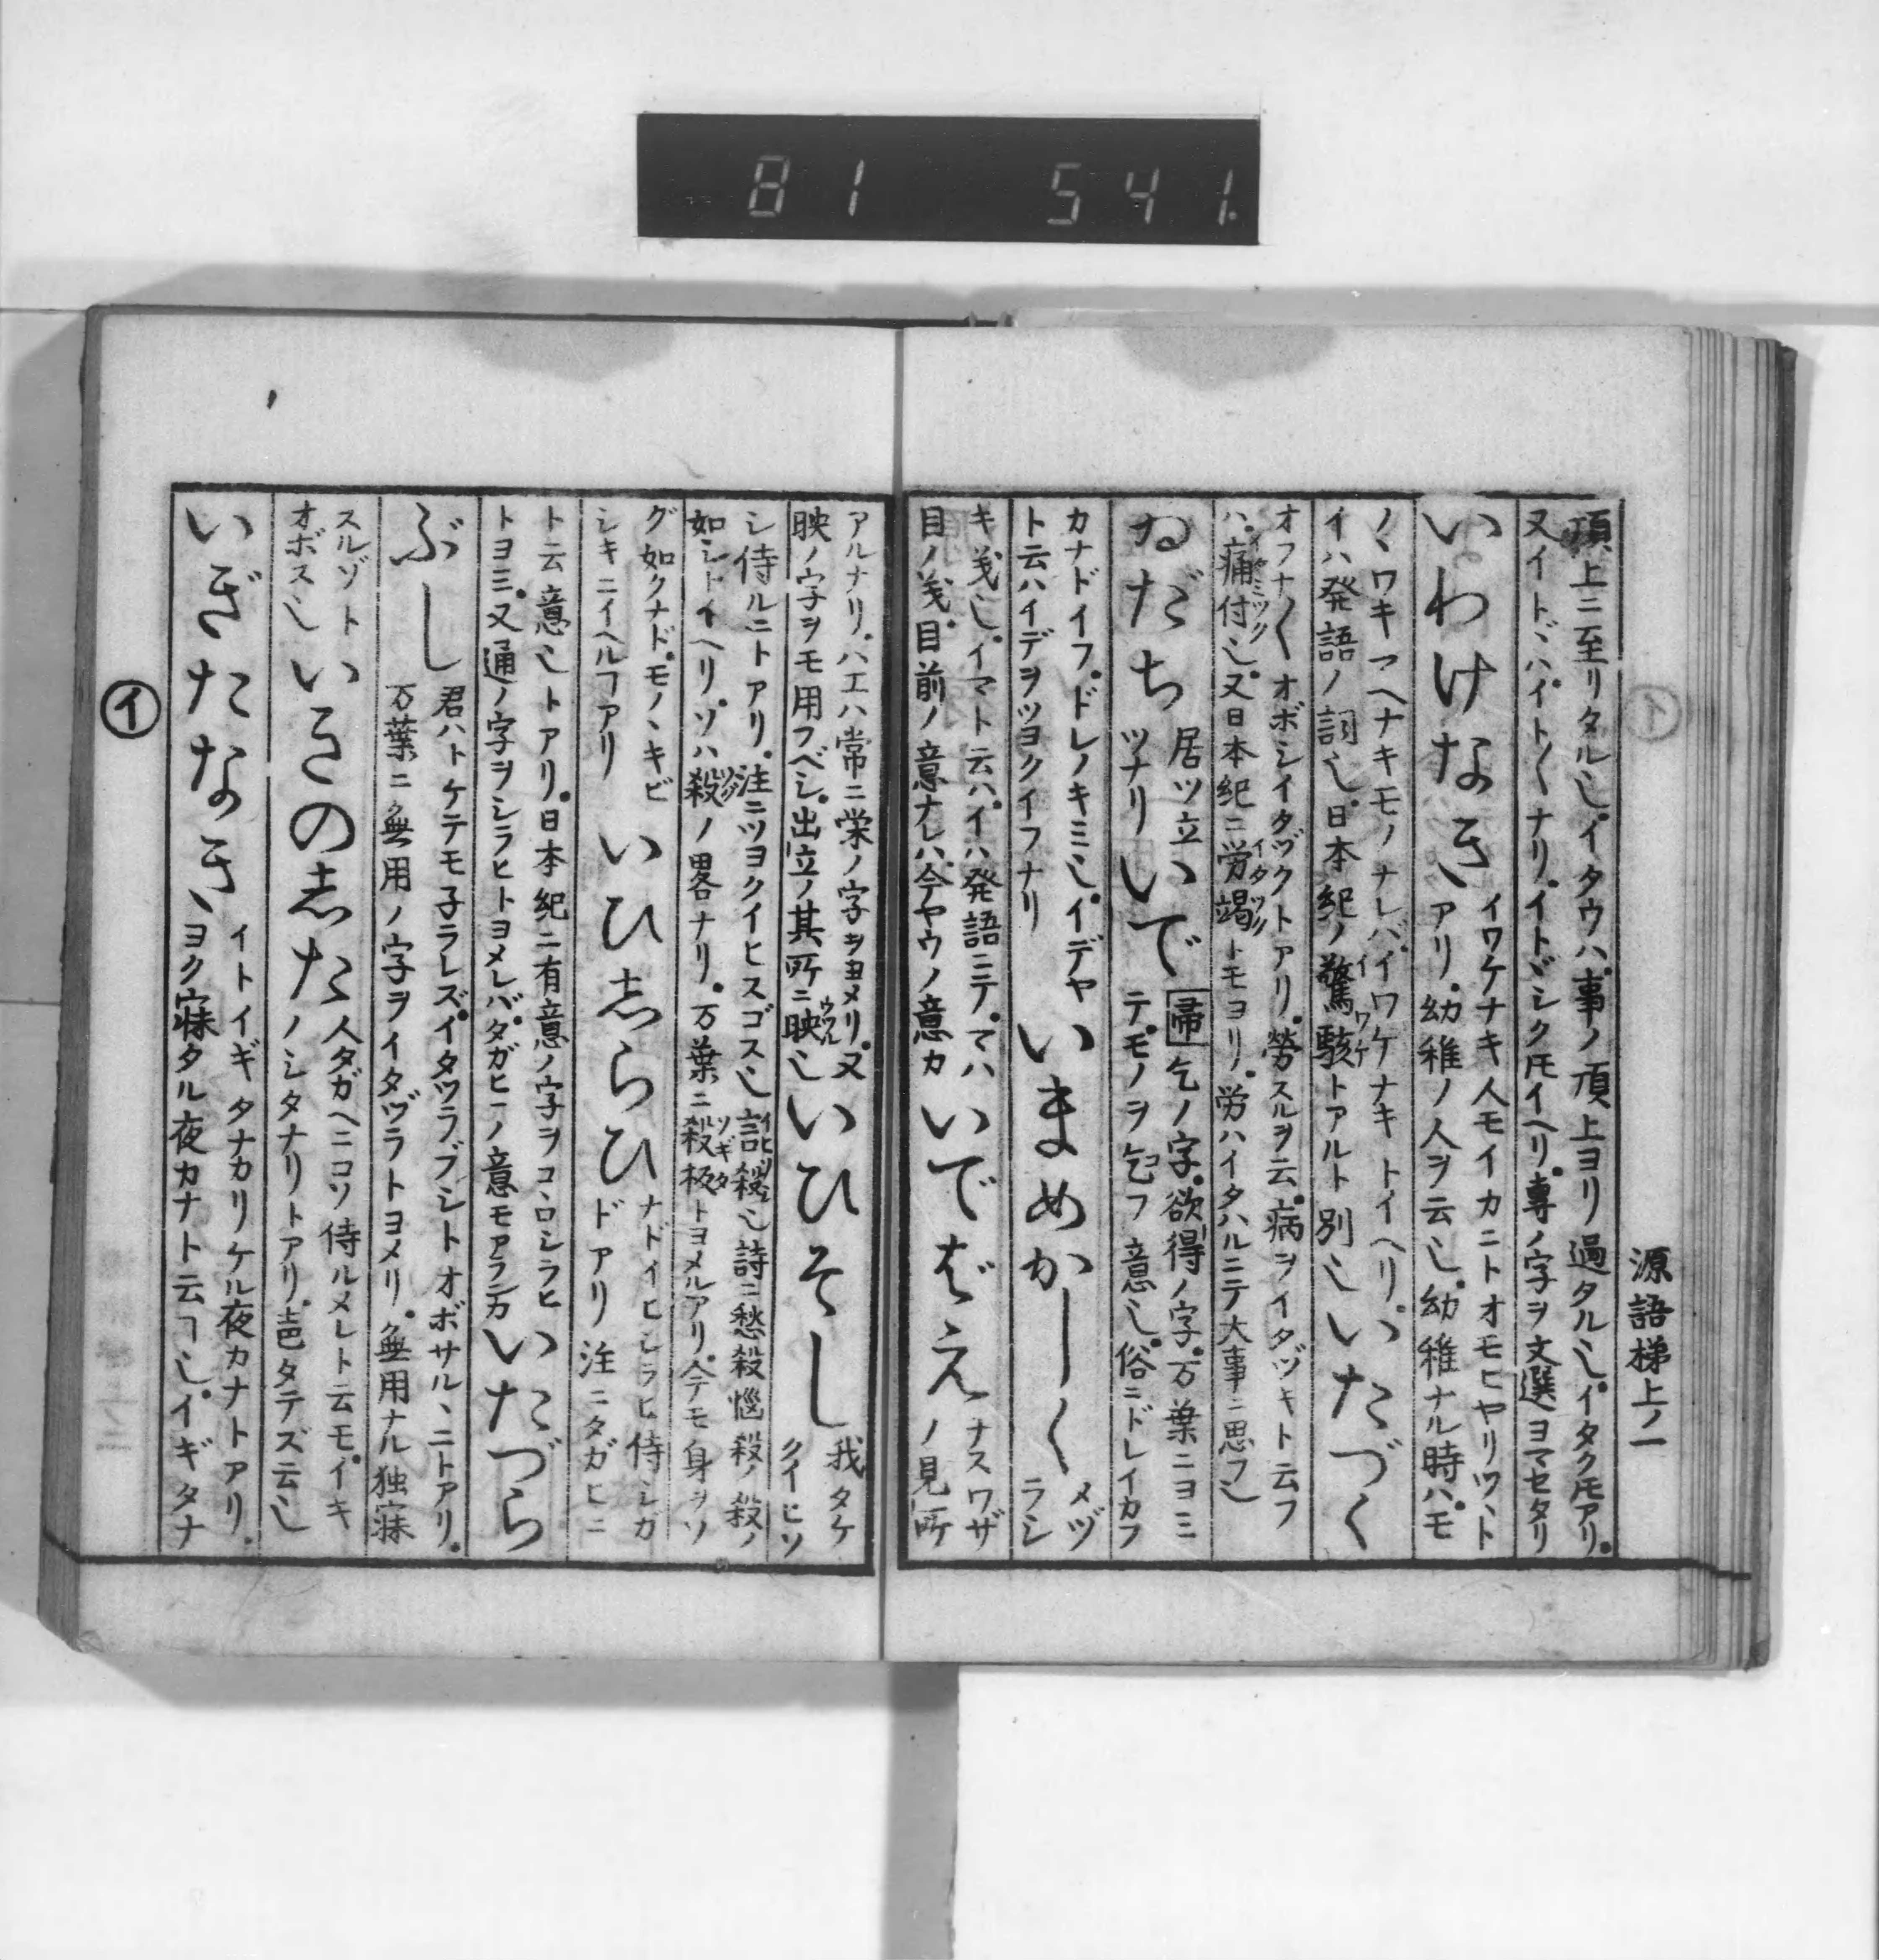 81 541
源語梯上ノ一
頂上ニ至リタル也。イタウハ。事ノ頂上ヨリ過タル也。イタクモアリ。
又イトヾハ。イト〱ナリ。イトヾシクトモイヘリ。専ノ字ヲ文選ヨマセタリ
いわけなき
イワケナキ人モイカニトオモヒヤリツヽト
アリ。幼稚ノ人ヲ云也。幼稚ナル時ハ。モ
ノヽワキマヘナキモノナレバ。イワケナキトイヘリ。
イハ発語ノ詞也。日本紀ノ驚駭イワケトアルト別也
いたづく
オフナ〱オボシイタヅクトアリ。労スルヲ云。病ヲイタヅキト云フ
ハ。痛付イヤミツク也。又日本紀ニ労竭イタツクトモヨリ。労ハイタハルニテ大事ニ思フ也
ゐだち
居ツ立
ツナリ
いで
帚乞ノ字。欲得ノ字。万葉ニヨミ
テ。モノヲ乞コフ意也。俗ニドレイカフ
カナドイフ。ドレノキミ也。イデヤ
ト云ハイデヲツヨクイフナリ
いまめかし〱
メヅ
ラシ
キ義也。イマト云ハ。イハ発語ニテ。マハ
目ノ義。目前ノ意ナレハ今ヤウノ意カ
いでばえ
ナスワザ
ノ見所
アルナリ。ハエハ常ニ栄ノ字ヲヨメリ。又
映ノ字ヲモ用フベシ。出立ノ其所ニ映ウツル也
いひそし
我タケ
クイヒソ
シ侍ルニトアリ。注ニツヨクイヒスゴス也言殺イヒソシ也詩ニ愁殺悩殺ノ殺ノ
如シトイヘリ。ソハ殺ソグノ畧ナリ。万葉ニ殺板ソギタトヨメルアリ。今モ身ヲソ
グ如クナド。モノヽキビ
シキニイヘルヿアリ
いひしらひ
ナドイヒシラヒ侍シガ
ドアリ注ニタガヒニ
ト云意也トアリ。日本紀ニ有意ノ字ヲコヽロシラヒ
トヨミ。又通ノ字ヲシラヒトヨメレバ。タガヒニノ意モアランカ
いたづら
ぶし
君ハトケテモ子ラレズ。イタヅラブシトオボサルヽニトアリ。
万葉ニ無用ノ字ヲイタヅラトヨメリ。無用ナル独寐
スルゾト
オボス也
いきのした
人タガヘニコソ侍ルメレト云モ。イキ
ノシタナリトアリ。声タテズ云也
いぎたなき
イトイギタナカリケル夜カナトアリ。
ヨク寐タル夜カナト云ヿ也。イギタナ
イ